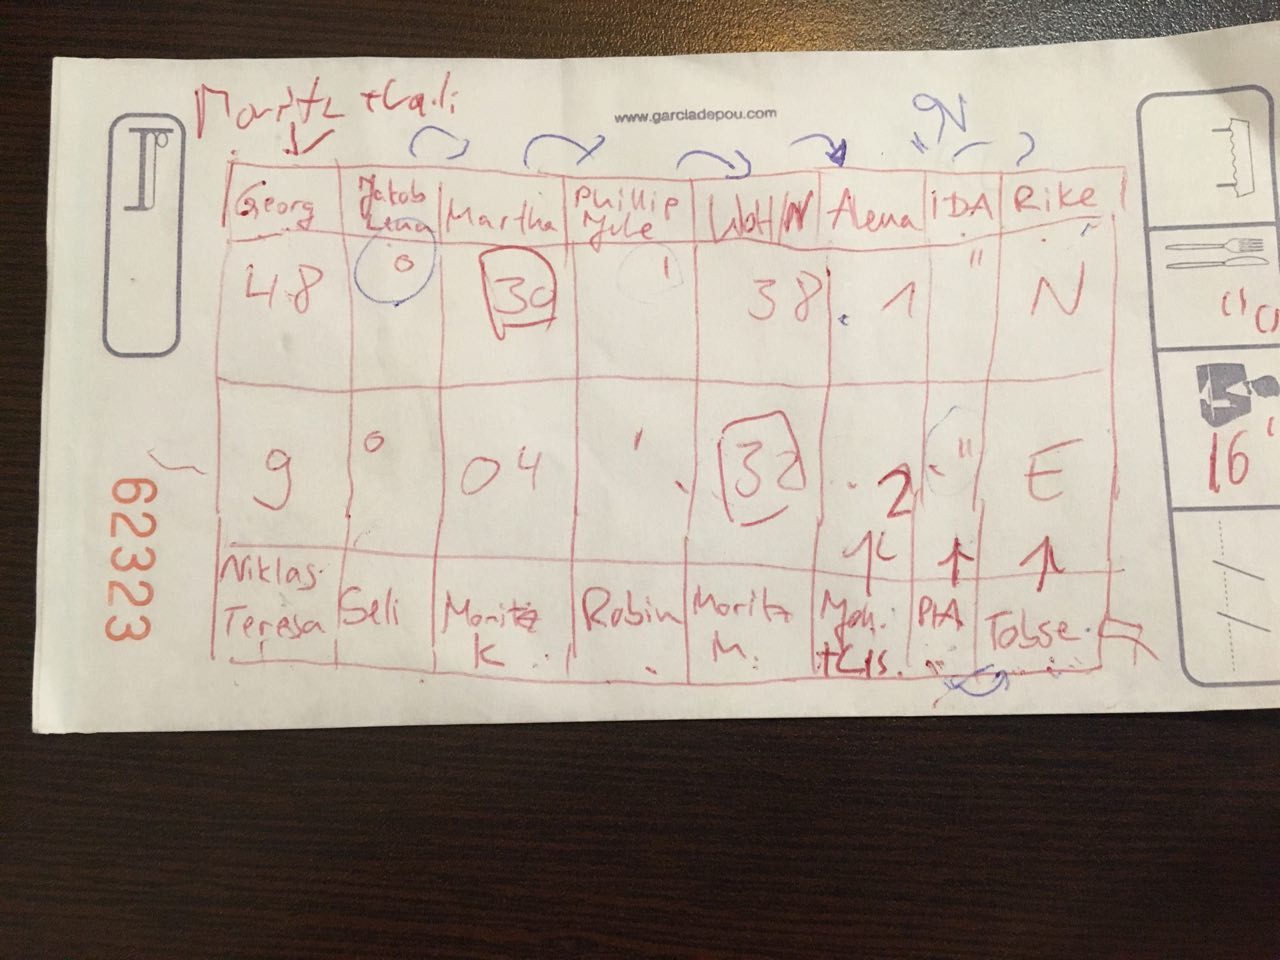 Moritz + Cali
www.garciadepou.com
"N
Georg Jakob Lena Martha Phillip Jule WoH/N Alena IDA Rike
48 ° 30 ' 38. 1 " N
9 ° 04 '. 32 . 2 " E
16
Niklas Teresa Seli Moritz K. Robin Moritz M. PIA Tobse
62323